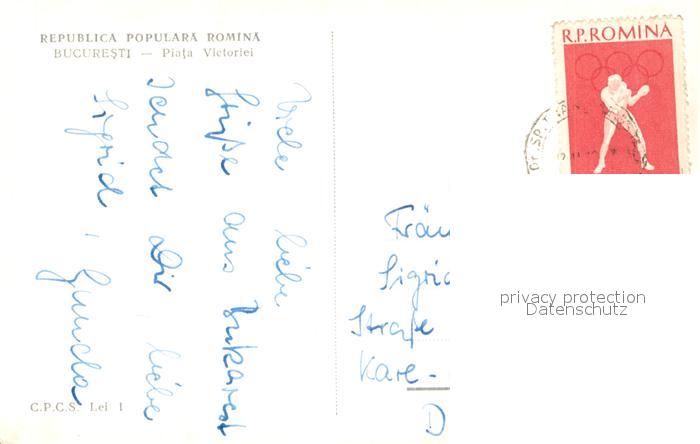 REPUBLICA POPULARĂ ROMÎNĂ
BUCUREŞTI — Piaţa Victoriei
Viele liebe
Grüße aus Bukarest
sendet Dir, liebe
Sigrid,
Gunda
C.P.C.S. Lei 1
R.P.ROMINA
Sigrid
Straße
D
privacy protection
Datenschutz